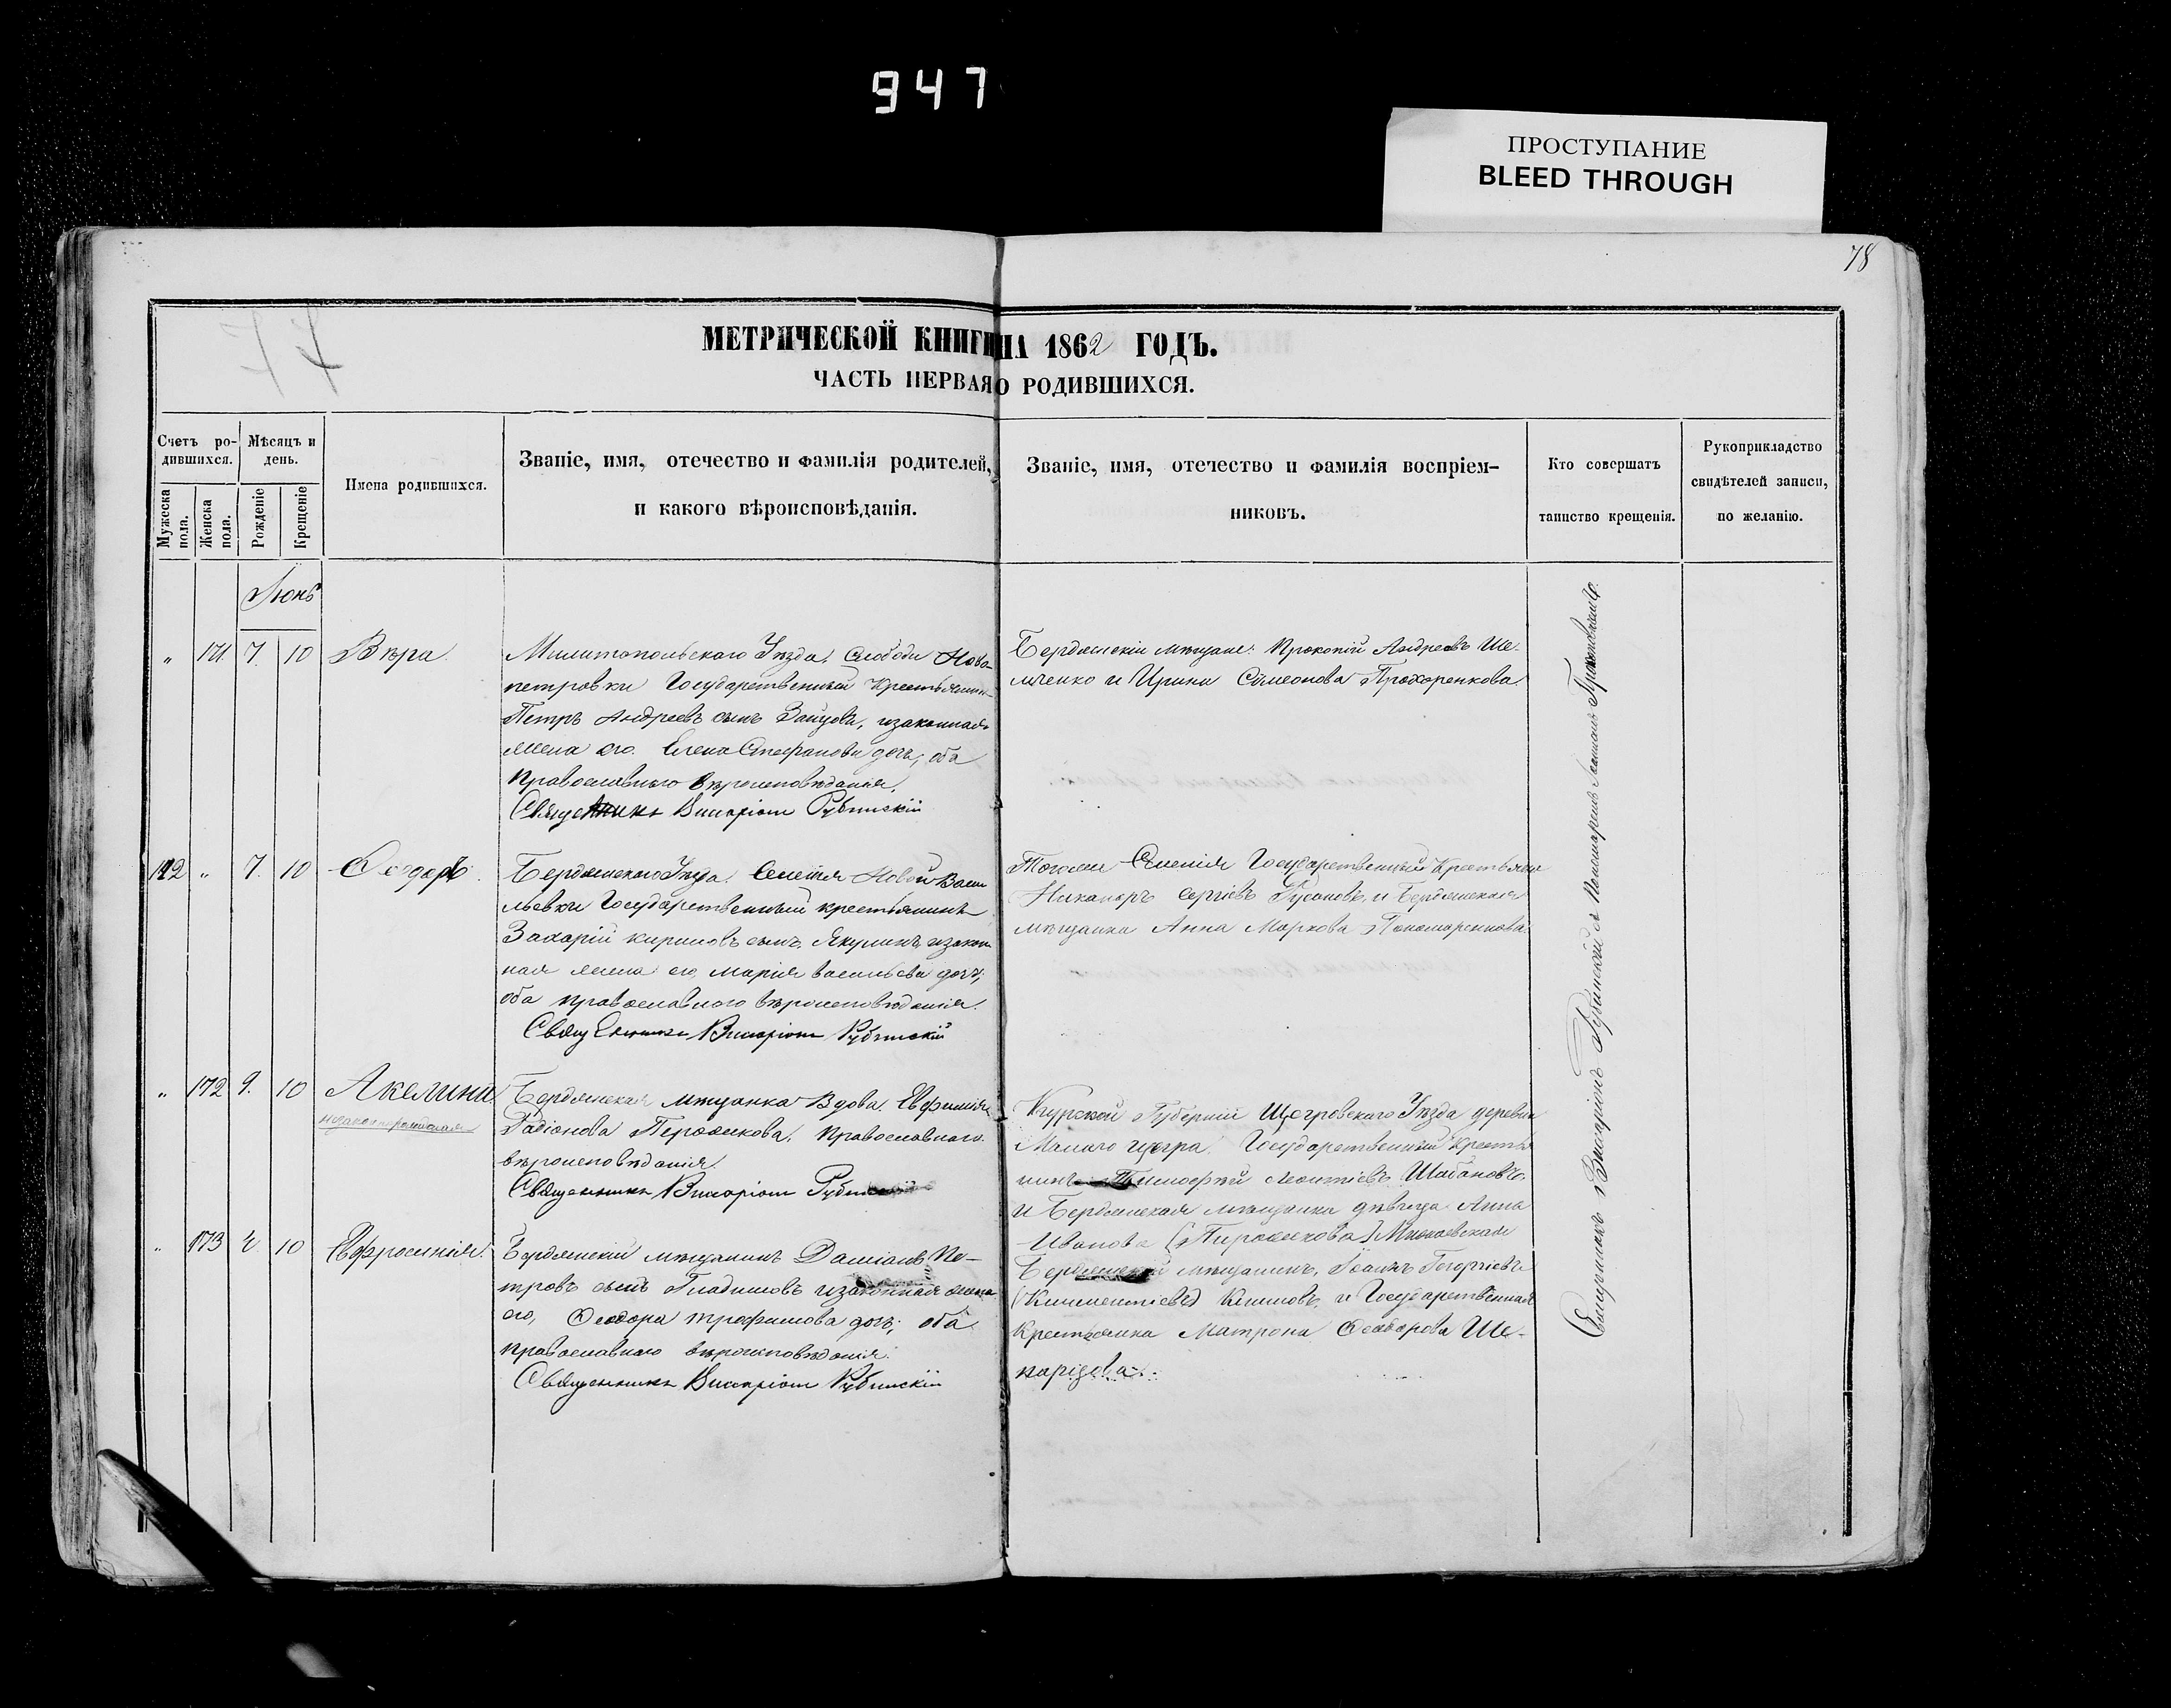 947
ПРОСТУПАНИЕ
BLEED THROUGH
78
МЕТРИЧЕСКОЙ КНИГИ НА 1862 ГОДЪ.
ЧАСТЬ ПЕРВАЯ О РОДИВШИХСЯ.
Счетъ ро-
дившихся.
Мужеска пола.
Женска пола.
Мѣсяцъ и
день.
Рожденіе
Крещеніе
Имена родившихся.
Званіе, имя, отечество и фамилія родителей,
и какого вѣроисповѣданія.
Званіе, имя, отечество и фамилія воспріем-
никовъ.
Кто совершатъ
таинство крещенія.
Рукоприкладство
свидѣтелей записи,
по желанію.
Іюнь
" 171. 7. 10 Вѣра.
Милитопольскаго Уѣзда, Слободы Ново
петровки Государственный Крестьянинъ
Петръ Андреевъ сынъ Зайцовъ, изаконная
жена его Елена Стефанова дочь, оба
Православнаго вѣроисповѣданія.
Священникъ Висаріонъ Рубинскій
Бердянскіи мѣщане: Прокопій Андреевъ Ше-
мченко и Ирина Симеонова Прохоренкова.
112 " 7. 10 Ѳеодоръ.
Бердянскаго Уѣзда. Селенія Новой Васи
льевки Государственный крестьянинъ
Захарій Кириловъ сынъ Якунинъ изакон
ная жена его Марія Васильева дочь,
оба православнаго вѣроисповѣданія.
Священникъ Висаріонъ Рубинскій
Тогоже Селенія Государственный Крестьянин
Никаноръ Сергіевъ Русановъ, и Бердянская
мѣщанка Анна Маркова Пономаренкова.
" 172 9. 10 Акелина
незаконорожденная
Бердянская мѣщанка Вдова Евфимія
Радіонова Пирожкова, Православнаго
вѣроисповѣданія.
Священникъ Висаріонъ Рубинскій
Курской Губерніи Щегровскаго Уѣзда деревни
Малаго Щегра, Государственный Крестья
нинъ Тимофей Леонтіевъ Шабановъ
и Бердянская мѣщанка дѣвица Анна
Иванова (Пирожкова)
" 173 10 Евфросинія.
Бердянскій мѣщанинъ Даміанъ Пе-
тровъ сынъ Гладилковъ изаконная жена
его, Ѳеодора Трофимова дочь, оба
православнаго вѣроисповѣданія.
Священникъ Висаріонъ Рубинскій
Бердянскій мѣщанинъ, Іоаннъ Георгіевъ
(Климентіевъ) Климовъ, и Государственная
Крестьянка Матрона Ѳеодорова Ше-
парцева.
Священникъ Висаріонъ Рубинскій и Пономарь